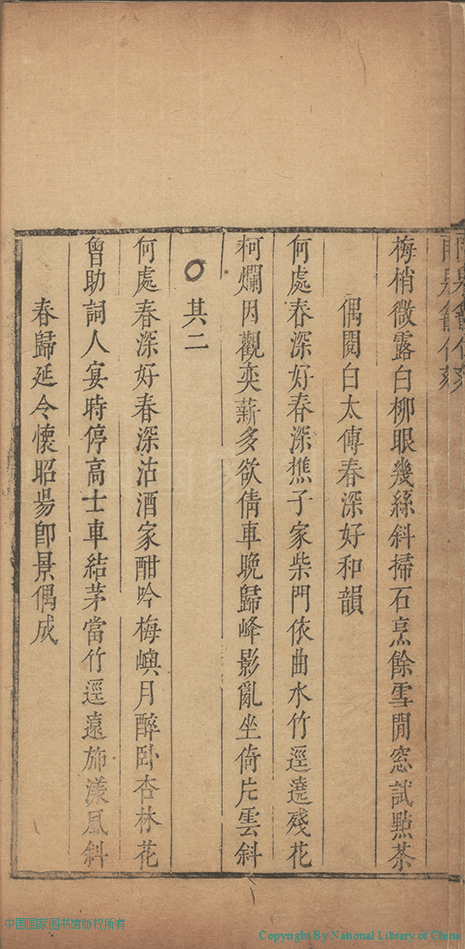 梅梢微露白柳眼幾絲斜掃石烹餘雪閒窓試點茶
偶閱白太傅春深好和韻
何處春深好春深樵子家柴門依曲水竹逕遶殘花
柯爛因觀奕薪多欲倩車晚歸峰影亂坐倚片雲斜
其二
何處春深好春深沽酒家酣吟梅嶼月醉卧杏林花
曾助詞人宴時停高士車結茅當竹逕遠斾漾風斜
春歸延令懷昭昜即景偶成
中国国家图书馆版权所有
Copyright By National Library of China